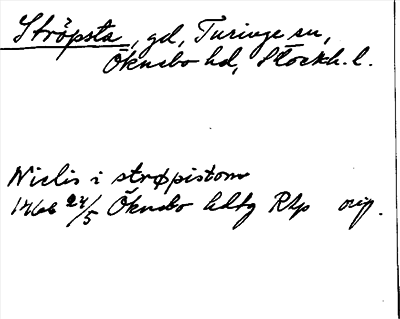 Ströpsta, gd, Turinge sn,
Öknebo hd, Stockh. l.
Niclis i strøpistom
1466 24/5 Öknebo hdtg Rap orig.